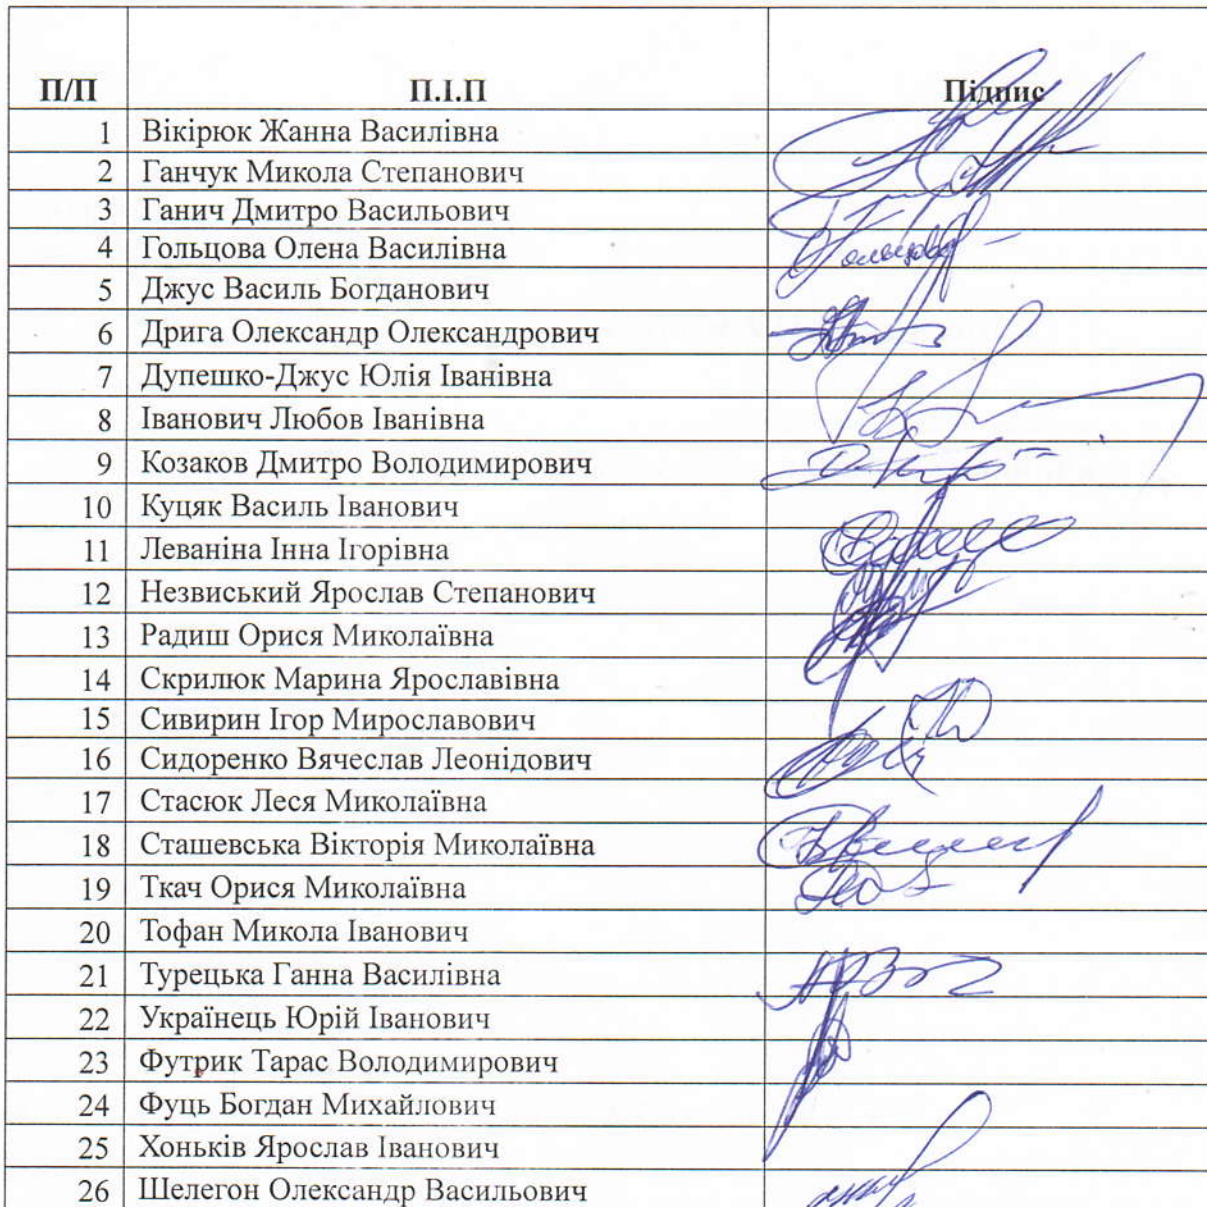 П/П П.І.П Підпис
1 Вікірюк Жанна Василівна
2 Ганчук Микола Степанович
3 Ганич Дмитро Васильович
4 Гольцова Олена Василівна Гольцова
5 Джус Василь Богданович
6 Дрига Олександр Олександрович
7 Дупешко-Джус Юлія Іванівна
8 Іванович Любов Іванівна
9 Козаков Дмитро Володимирович
10 Куцяк Василь Іванович
11 Леваніна Інна Ігорівна
12 Незвиський Ярослав Степанович
13 Радиш Орися Миколаївна
14 Скрилюк Марина Ярославівна
15 Сивирин Ігор Мирославович
16 Сидоренко Вячеслав Леонідович
17 Стасюк Леся Миколаївна
18 Сташевська Вікторія Миколаївна
19 Ткач Орися Миколаївна
20 Тофан Микола Іванович
21 Турецька Ганна Василівна
22 Українець Юрій Іванович
23 Футрик Тарас Володимирович
24 Фуць Богдан Михайлович
25 Хоньків Ярослав Іванович
26 Шелегон Олександр Васильович